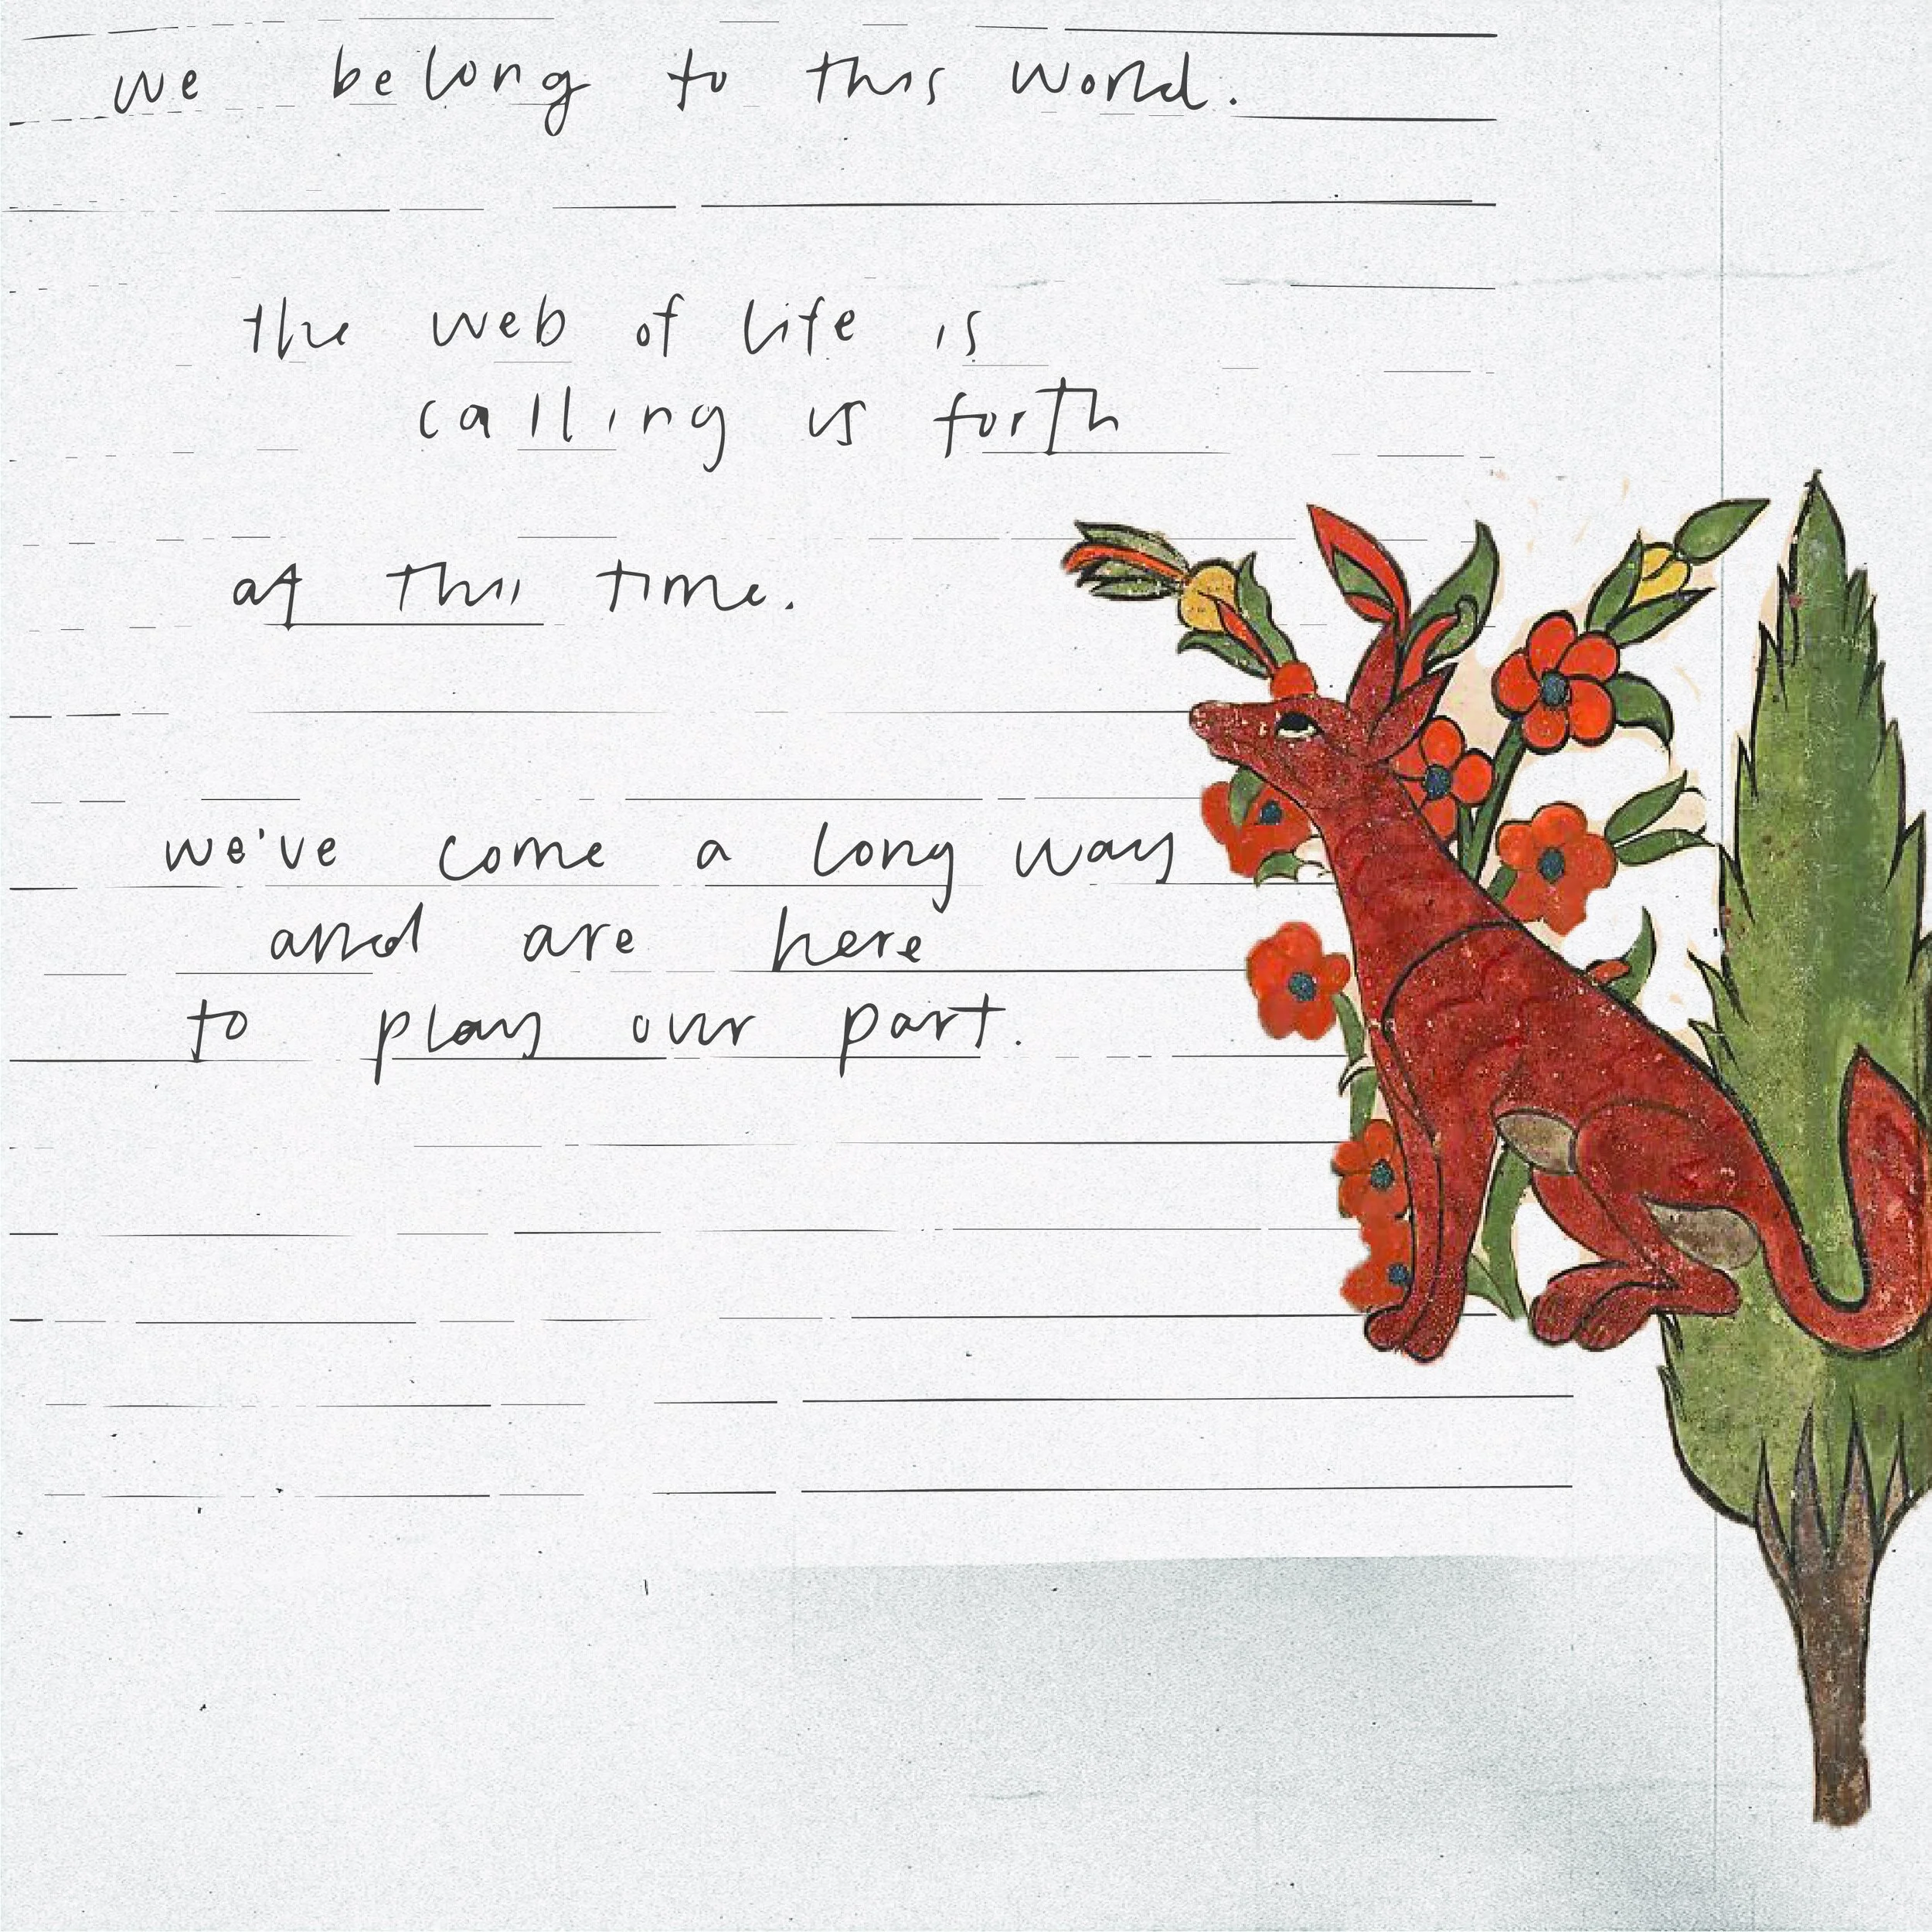 we belong to this world.
the web of life is
calling us forth
at this time.
we've come a long way
and are here
to play our part.